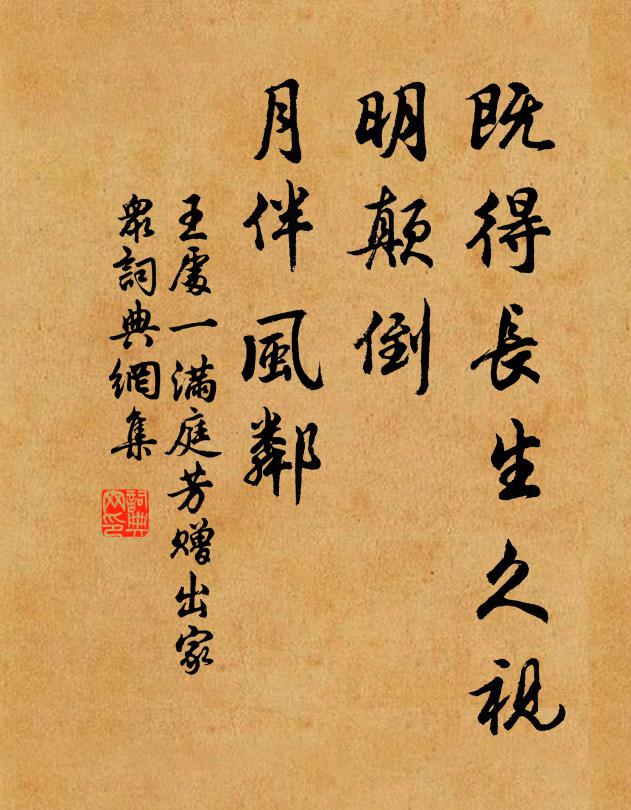 既得長生久視
明顛倒
月伴風鄰
王處一滿庭芳贈出家
眾詞典網集
詞典
网印